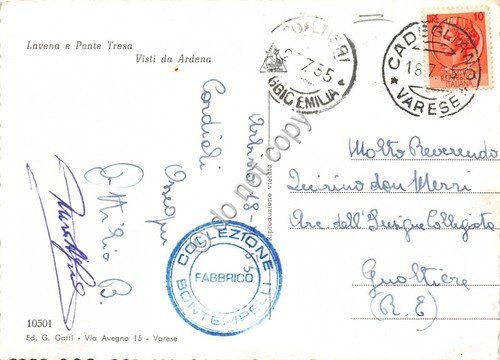 Lavena e Ponte Tresa
Visti da Ardena
Cordiali
Ossequi
Attilio B.
10501
Ed. G. Gatti - Via Avegno 15 - Varese
Riproduzione vietata
do not copy
COLLEZIONE
FABBRICO
BONTEMPELLI
7.55
REGGIO EMILIA
CADEGLIANO
18.7.
VARESE
10
Molto Reverendo
Quirino don Merzi
Arc dell'Insigne Collegiata
Gualtieri
(R. E)